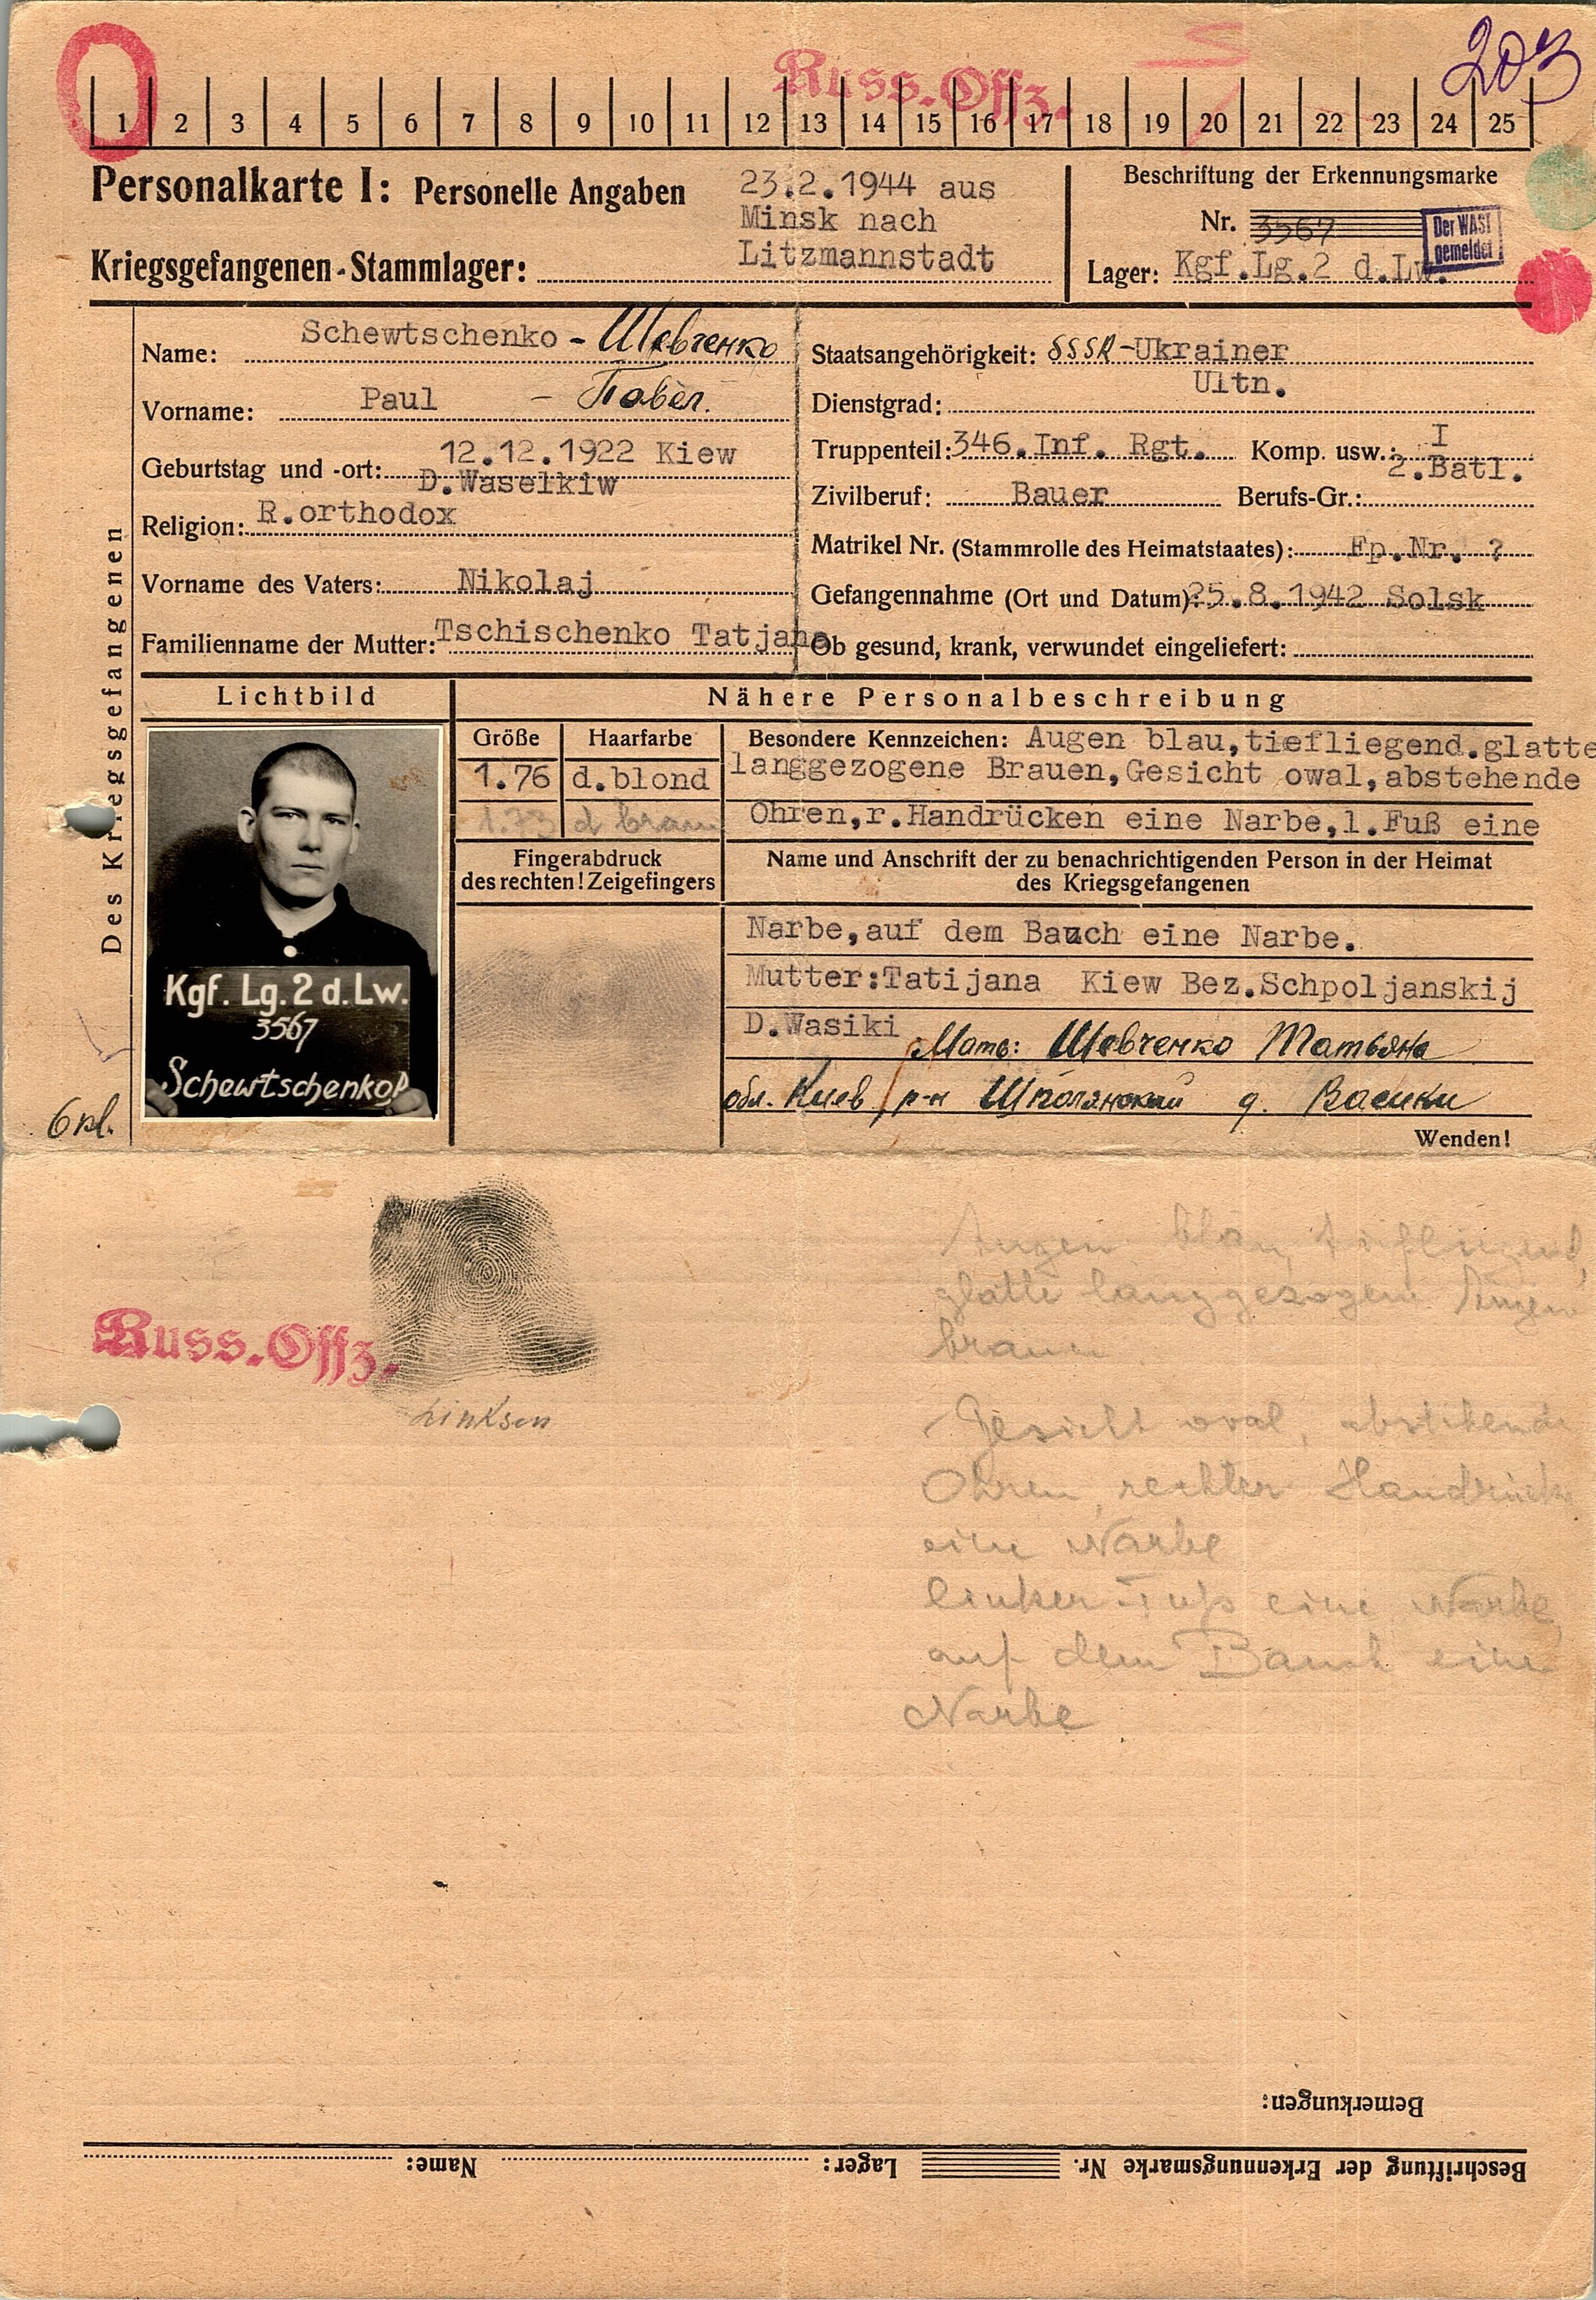 203
Russ. Offz.
1 2 3 4 5 6 7 8 9 10 11 12 13 14 15 16 17 18 19 20 21 22 23 24 25
Personalkarte I: Personelle Angaben
23.2.1944 aus
Minsk nach
Litzmannstadt
Kriegsgefangenen-Stammlager:
Beschriftung der Erkennungsmarke
Nr. 3567
Der WASt
gemeldet
Lager: Kgf.Lg.2 d.Lw.
Des Kriegsgefangenen
Name: Schewtschenko - Шевченко
Vorname: Paul - Павел.
Geburtstag und -ort: 12.12.1922 Kiew
D.Waselkiw
Religion: R.orthodox
Vorname des Vaters: Nikolaj
Familienname der Mutter: Tschischenko Tatjana
Staatsangehörigkeit: SSSR-Ukrainer
Dienstgrad: Ultn.
Truppenteil: 346.Inf. Rgt. Komp. usw.: I
2.Batl.
Zivilberuf: Bauer Berufs-Gr.:
Matrikel Nr. (Stammrolle des Heimatstaates): Fp.Nr. ?
Gefangennahme (Ort und Datum): 25.8.1942 Solsk
Ob gesund, krank, verwundet eingeliefert:
Lichtbild
Nähere Personalbeschreibung
Größe Haarfarbe
1.76 d.blond
1.73 d braun
Besondere Kennzeichen: Augen blau,tiefliegend.glatte
langgezogene Brauen,Gesicht owal,abstehende
Ohren,r.Handrücken eine Narbe,l.Fuß eine
Fingerabdruck
des rechten! Zeigefingers
Name und Anschrift der zu benachrichtigenden Person in der Heimat
des Kriegsgefangenen
Narbe,auf dem Bauch eine Narbe.
Mutter:Tatijana Kiew Bez.Schpoljanskij
D.Wasiki
Мать: Шевченко Татьяна
обл. Киев р-н Шполянский д. Васики
Wenden!
Kgf. Lg. 2 d. Lw.
3567
Schewtschenko P
Russ. Offz.
Augen blau, tiefliegend,
glatte langgezogene Augen
braun
Gesicht oval, abstehende
Ohren, rechter Handrück
eine Narbe
linker Fuß eine Narbe
auf dem Bauch eine
Narbe
Bemerkungen:
Beschriftung der Erkennungsmarke Nr. Lager: Name: